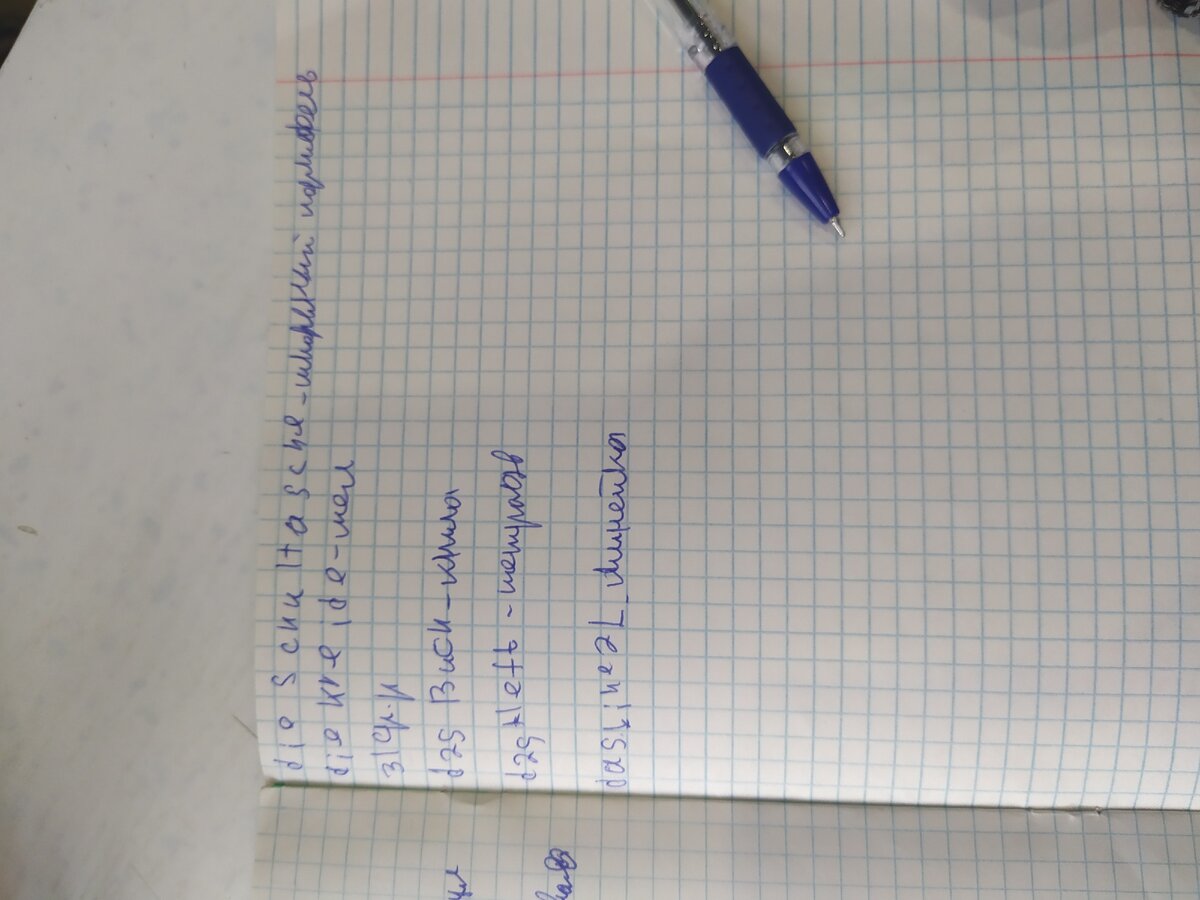 die Schultasche - школьный портфель
die kreide - мел
3) Ср.р
das Buch - книга
das Heft - тетрадь
das Lineal - линейка